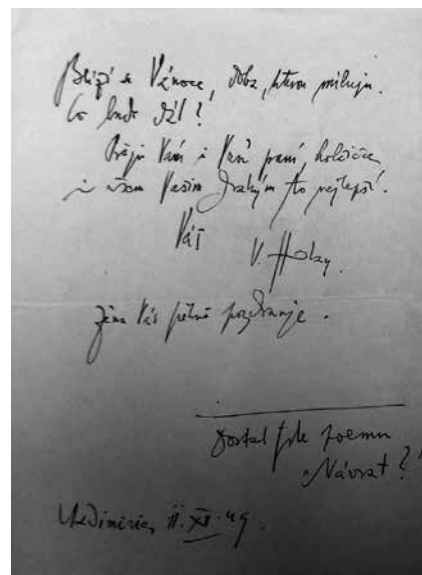 Blíží se Vánoce, doba, kterou miluju.
Co bude dál?
Přeju Vám i Vaší paní, holčičce
i všem Vašim drahým to nejlepší.
Váš
V. Holan.
Žena Vás pěkně pozdravuje.
Dostal jste poemu
"Návrat"?
XI. 49.